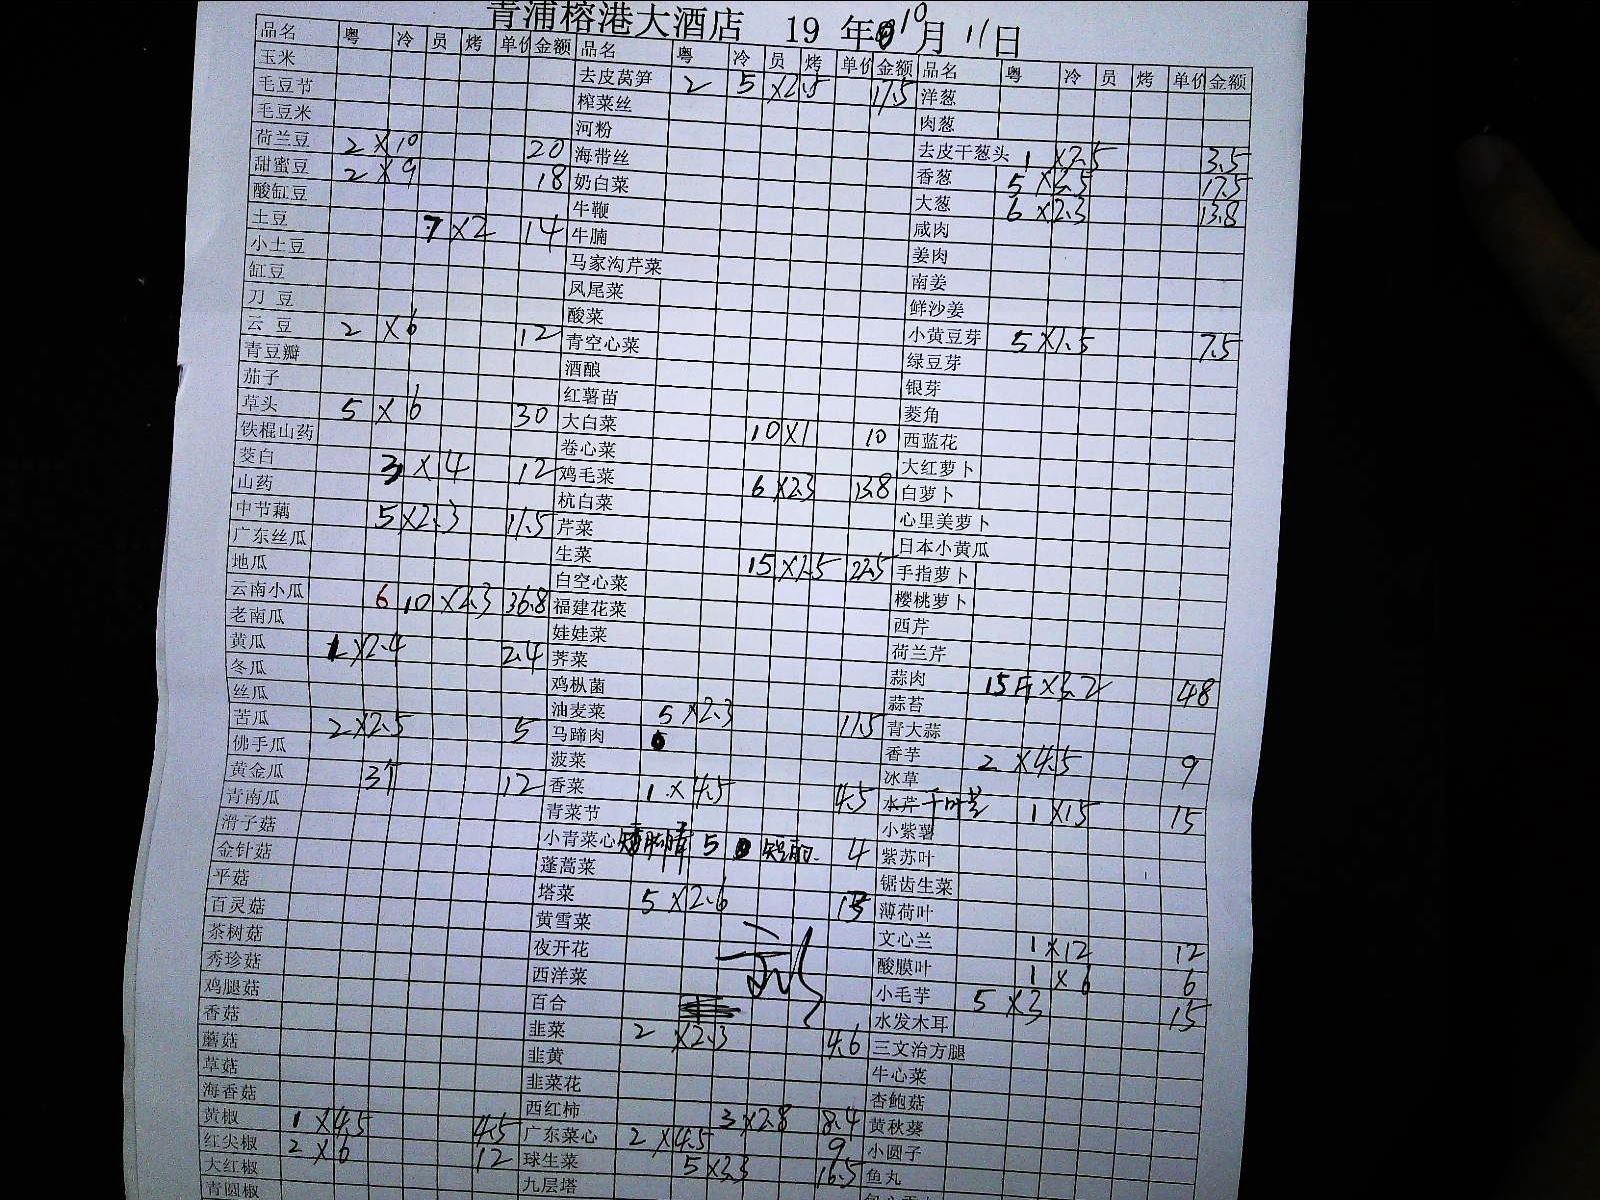 青浦榕港大酒店 19 年 10 月 11 日
品名 粤 冷 员 烤 单价 金额
玉米
毛豆节
毛豆米
荷兰豆 2×10 20
甜蜜豆 2×9 18
酸缸豆
土豆 7×2 14
小土豆
缸豆
刀 豆
云 豆 2×6 12
青豆瓣
茄子
草头 5×6 30
铁棍山药
茭白 3×4 12
山药
中节藕 5×2.3 11.5
广东丝瓜
地瓜
云南小瓜 6 10×2.3 36.8
老南瓜
黄瓜 1×2.4 2.4
冬瓜
丝瓜
苦瓜 2×2.5 5
佛手瓜
黄金瓜 3个 12
青南瓜
滑子菇
金针菇
平菇
百灵菇
茶树菇
秀珍菇
鸡腿菇
香菇
蘑菇
草菇
海香菇
黄椒 1×4.5 4.5
红尖椒 2×6 12
大红椒
青圆椒
品名 粤 冷 员 烤 单价 金额
去皮莴笋 2 5×2.5 17.5
榨菜丝
河粉
海带丝
奶白菜
牛鞭
牛腩
马家沟芹菜
凤尾菜
酸菜
青空心菜
酒酿
红薯苗
大白菜 10×1 10
卷心菜
鸡毛菜 6×2.3 13.8
杭白菜
芹菜
生菜 15×1.5 22.5
白空心菜
福建花菜
娃娃菜
荠菜
鸡枞菌
油麦菜 5×2.3 11.5
马蹄肉
菠菜
香菜 1×4.5 4.5
青菜节
小青菜心 5 4
蓬蒿菜
塔菜 5×2.6 13
黄雪菜
夜开花
西洋菜
百合
韭菜 2×2.3 4.6
韭黄
韭菜花
西红柿 3×2.8 8.4
广东菜心 2×4.5 9
球生菜 5×3.3 16.5
九层塔
品名 粤 冷 员 烤 单价 金额
洋葱
肉葱
去皮干葱头 1×2.5 3.5
香葱 5×2.5 17.5
大葱 6×2.3 13.8
咸肉
姜肉
南姜
鲜沙姜
小黄豆芽 5×1.5 7.5
绿豆芽
银芽
菱角
西蓝花
大红萝卜
白萝卜
心里美萝卜
日本小黄瓜
手指萝卜
樱桃萝卜
西芹
荷兰芹
蒜肉 15斤×3.2 48
蒜苔
青大蒜
香芋 2×4.5 9
冰草
水芹 1×15 15
小紫薯
紫苏叶
锯齿生菜
薄荷叶
文心兰 1×12 12
酸膜叶 1×6 6
小毛芋 5×3 15
水发木耳
三文治方腿
牛心菜
杏鲍菇
黄秋葵
小圆子
鱼丸